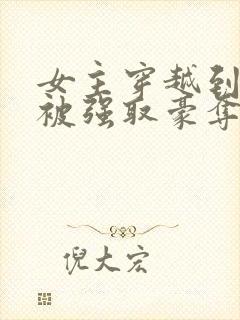 女主穿越到
被强取豪夺
倪大宏